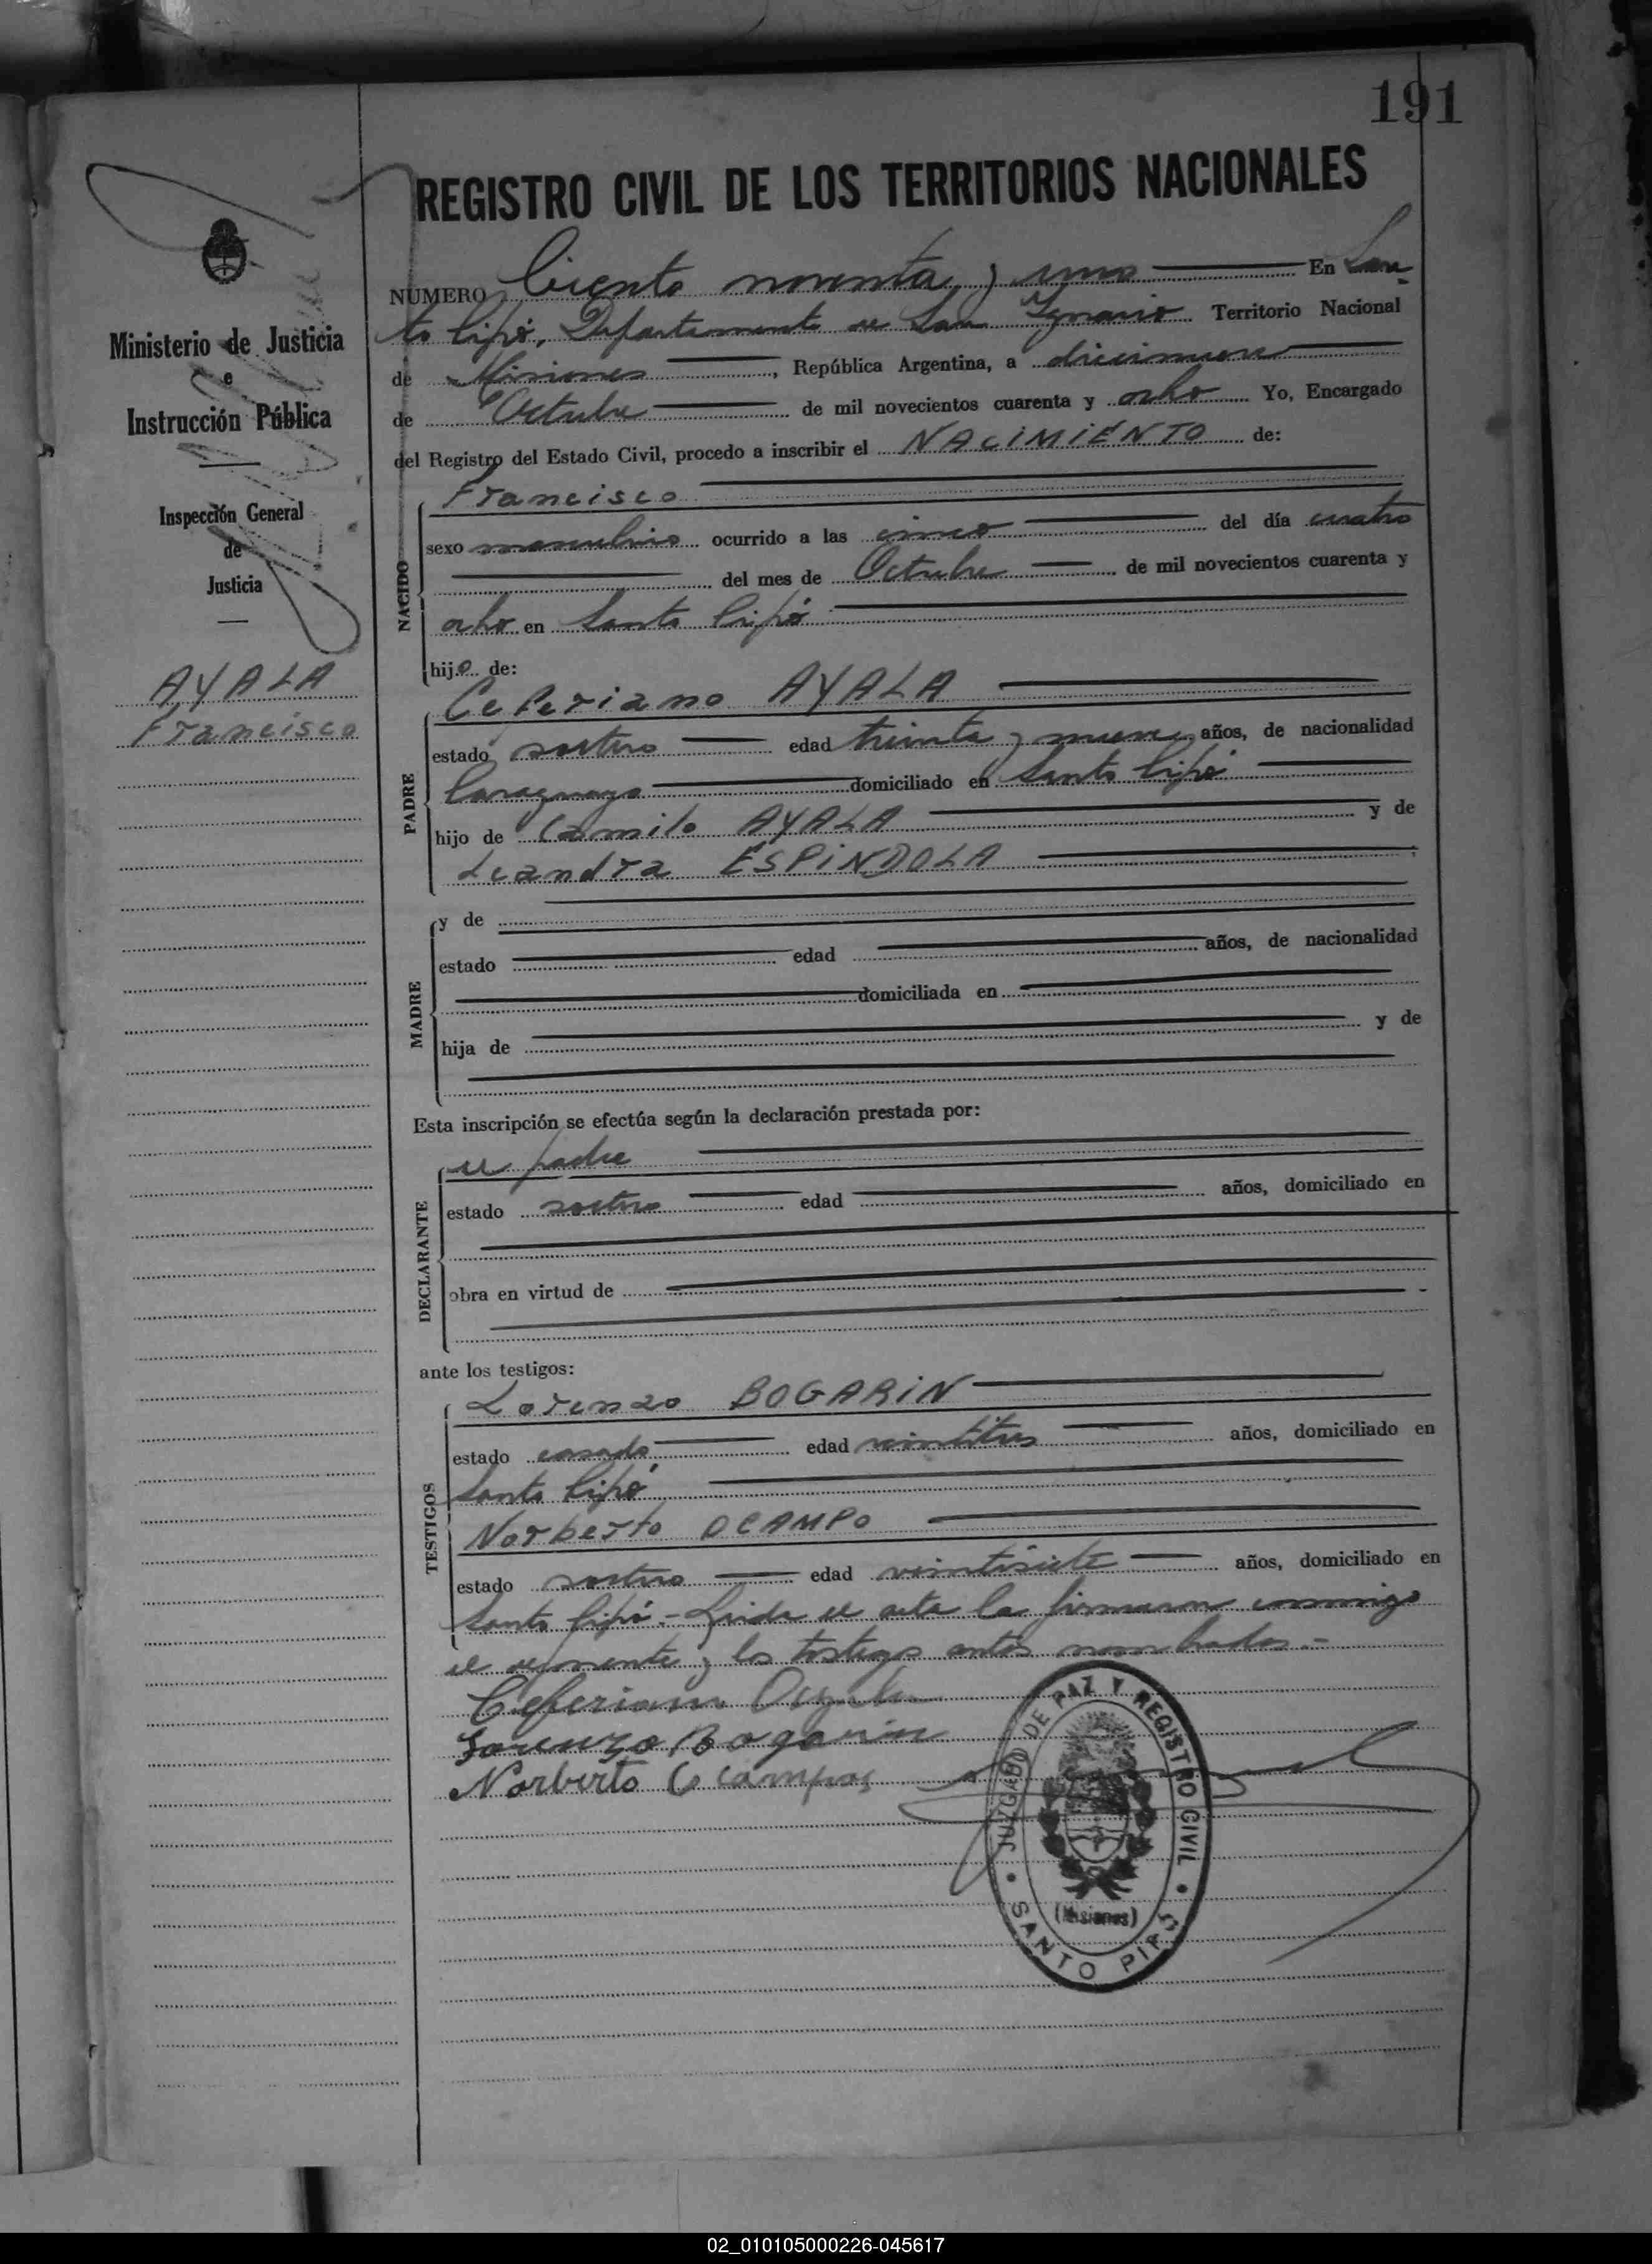 191
REGISTRO CIVIL DE LOS TERRITORIOS NACIONALES
Ministerio de Justicia
e
Instrucción Pública
Inspección General
de
Justicia
AYALA
Francisco
NUMERO Ciento noventa y uno En San
to Pipó, Departamento de San Ignacio Territorio Nacional
de Misiones, República Argentina, a diecinueve
de Octubre de mil novecientos cuarenta y ocho Yo, Encargado
del Registro del Estado Civil, procedo a inscribir el NACIMIENTO de:
NACIDO
Francisco
sexo masculino ocurrido a las cinco del día cuatro
del mes de Octubre de mil novecientos cuarenta y
ocho en Santo Pipó
hijo de:
PADRE
Ceferiano AYALA
estado soltero edad treinta y nueve años, de nacionalidad
Paraguaya domiciliado en Santo Pipó
hijo de Camilo AYALA y de
Leandra ESPINDOLA
MADRE
y de
estado edad años, de nacionalidad
domiciliada en
hija de y de
Esta inscripción se efectúa según la declaración prestada por:
DECLARANTE
el padre
estado soltero edad años, domiciliado en
obra en virtud de
ante los testigos:
TESTIGOS
Lorenzo BOGARIN
estado casado edad veintitres años, domiciliado en
Santo Pipó
Norberto OCAMPO
estado soltero edad veintisiete años, domiciliado en
Santo Pipó.- Leida el acta la firmaron conmigo
el exponente y los testigos antes nombrados.-
Ceferiano Ayala
Lorenzo Bogarin
Norberto Ocampos
JUZGADO DE PAZ Y REGISTRO CIVIL
(Misiones)
SANTO PIPÓ
02_010105000226-045617